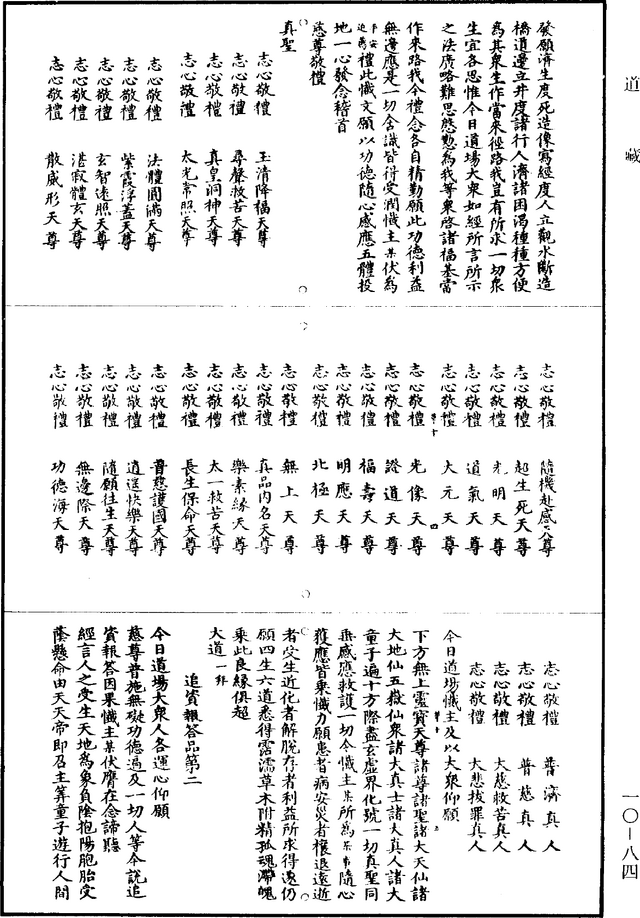 道藏
發願濟生度死造像寫經度人立觀水斷造
橋道邊立井度諸行人濟諸困渴種種方便
為其衆生作當來徑路我豈有所求一切衆
生宜各思惟今日道場大衆如經所言所示
之法廣略難思慇懃為我等衆啓諸福基當
作來路我今禮念各自精勤願此功德利益
無邊應是一切含識皆得受潤懺主某伏為
禮此懺文願以功德隨心感應五體投
地一心發念稽首
慈尊敬禮
真聖
志心敬禮 玉清降福天尊
志心敬禮 尋聲救苦天尊
志心敬禮 真皇洞神天尊
志心敬禮 太光常照天尊
志心敬禮 法體圓滿天尊
志心敬禮 紫霞浮蓋天尊
志心敬禮 玄智遠照天尊
志心敬禮 湛寂體玄天尊
志心敬禮 散威形天尊
志心敬禮 隨機赴感天尊
志心敬禮 超生死天尊
志心敬禮 光明天尊
志心敬禮 道氣天尊
志心敬禮 大元天尊
志心敬禮 光像天尊
志心敬禮 證道天尊
志心敬禮 福壽天尊
志心敬禮 明應天尊
志心敬禮 北極天尊
志心敬禮 無上天尊
志心敬禮 真品內名天尊
志心敬禮 樂素緣天尊
志心敬禮 太一救苦天尊
志心敬禮 長生保命天尊
志心敬禮 普慈護國天尊
志心敬禮 逍遙快樂天尊
志心敬禮 隨願往生天尊
志心敬禮 無邊際天尊
志心敬禮 功德海天尊
志心敬禮 普濟真人
志心敬禮 普慈真人
志心敬禮 大慈救苦真人
志心敬禮 大悲拔罪真人
今日道場懺主及以大衆仰願
下方無上靈寶天尊諸尊諸聖諸大天仙諸
大地仙五嶽仙衆諸大真士諸大真人諸大
童子遍十方際盡玄虛界化號一切真聖同
垂感應救護一切今懺主某所為某事隨心
獲應皆乘懺力願患者病安災者禳退遠逝
者受生近化者解脫存者利益所求得遂仍
願四生六道悉得露濡草木附精孤魂滯魄
乘此良緣俱超
大道一拜
追資報答品第二
今日道場大衆人各運心仰願
慈尊普施無礙功德遍及一切人等今說追
資報答因果懺主某伏膺在念諦聽
經言人之受生天地為象負陰抱陽胞胎安
蔭懸命由天天帝即召主筭童子遊行人間
一〇—八四